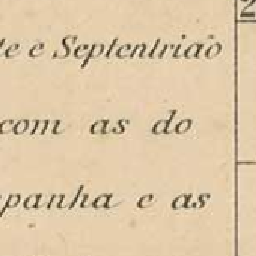 te e Septentrião
com as do
panha e as
2